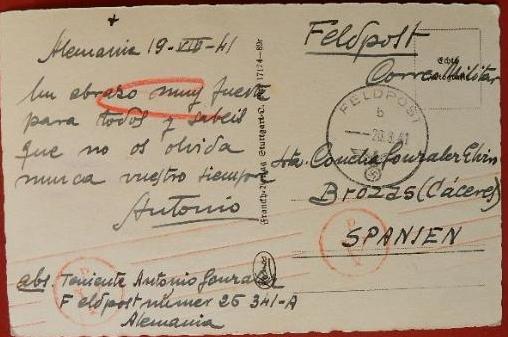 Alemania 19-VIII-41
Un abrazo muy fuerte
para todos y sabeis
que no os olvida
nunca vuestro siempre
Antonio
abs. Teniente Antonio Gonzalez
Feldpost númer 25 341-A
Alemania
Feldpost
Correo Militar
Echte
FELDPOST
b
20.8.41
Sta. Concha Gonzalez
Brozas (Cáceres)
SPANIEN